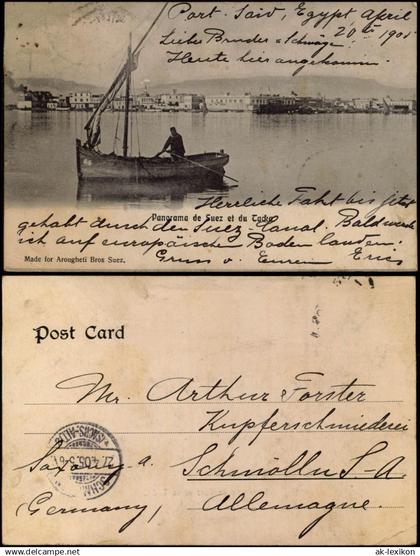 Port Said, Egypt April
20th 1905
Liebe Bruder u Schwäge!
Heute hier angekommen.
Herrliche Fahrt bis jetzt
gehabt durch den Suez-Canal. Bald werde
ich auf europäischen Boden landen.
Gruss v. Eurem Erics
Panorama de Suez et du Tadra
Made for Arougheti Bros Suez.
Post Card
Mr. Arthur Forster
Kupferschmiederei
Schmölln S-A.
(Germany) Allemagne.
ak-lexikon.com